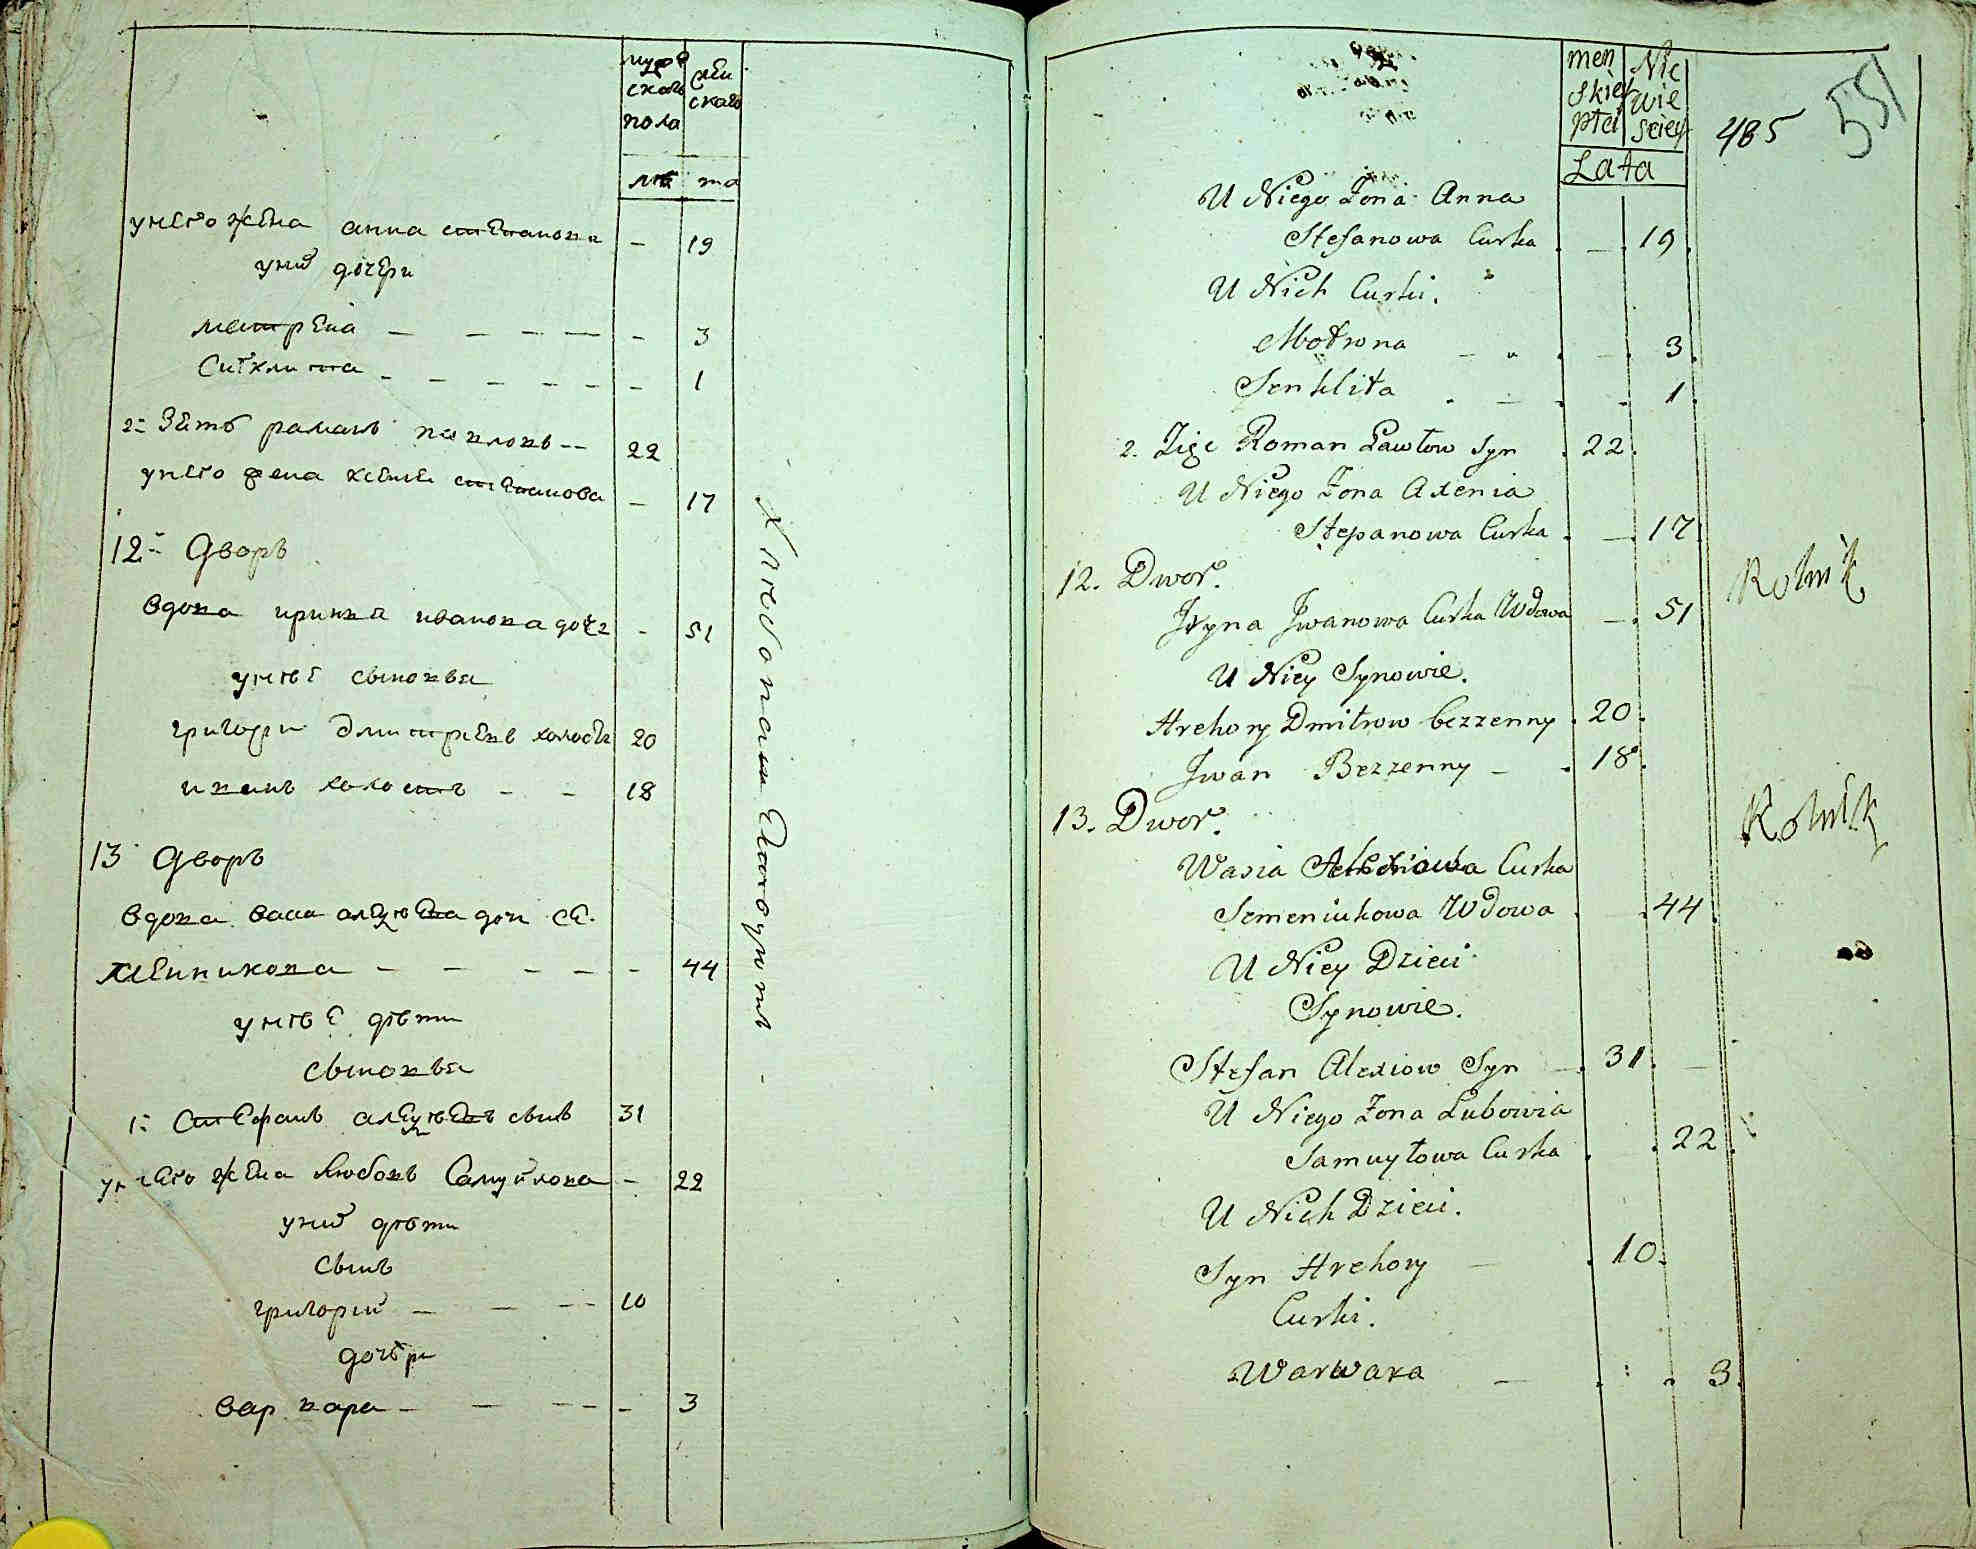 муже
скаго
пола
жен
скаго
лѣ та
унего жена анна степанова - 19
уних дочери
матрена - 3
Сиклита - 1
2 Зять раман павловъ -- 22
унего жена ксение степанова - 17
12 Дворъ
вдова иринка иванова дочь - 51
унеѣ сыновья
григори дмитриевъ холостъ 20
иванъ холостъ - - 18
13 Дворъ
вдова васа алеѯѣева доч се
менникова - 44
унеѣ дѣти
сыновья
1 Стефанъ алеѯѣевъ сынъ 31
унего жена Любовь Самуилова - 22
уних дѣти
сынъ
григорий - 10
дочѣри
варвара - 3
Хлебопашествуютъ
men
skiey
płci
Nie
wie
sciey
Lata
485 551
U Niego Żona Anna
Stefanowa Curka - 19
U Nich Curki.
Motrona - 3
Senklita - 1
2. Zięc Roman Pawłow Syn 22
U Niego Żona Axenia
Stepanowa Curka - 17
12. Dwor. Rolnik
Iryna Jwanowa Curka Wdowa - 51
U Niey Synowie.
Hrehory Dmitrow bezzenny 20
Jwan Bezzenny - 18
13. Dwor. Rolnik
Wasia Curka
Semeniukowa Wdowa 44
U Niey Dzieci
Synowie.
Stefan Alexiow Syn - 31 -
U Niego Żona Lubowia
Samuyłowa Curka 22
U Nich Dzieci.
Syn Hrehory - 10
Curki.
Warwara - 3